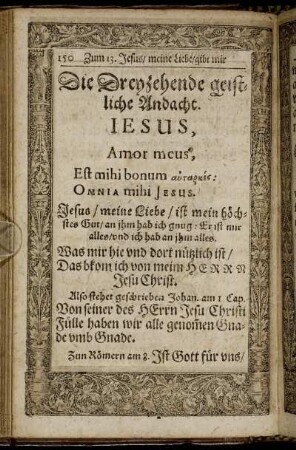 150 Zum 13. Jesus/ meine Liebe/gibt mir
Die Dreyzehende geist-
liche Andacht.
IESUS,
Amor meus,
Est mihi bonum αὐταρκὲς:
OMNIA mihi JESUS.
Jesus/ meine Liebe/ ist mein höch-
stes Gut/ an ihm hab ich gnug: Er ist mir
alles/ vnd ich hab an jhm alles.
Was mir hie vnd dort nützlich ist/
Das bkom ich von meim HERRN
Jesu Christ.
Also stehet geschrieben Johan. am 1 Cap.
Von seiner des HErrn Jesu Christi
Fülle haben wir alle genom̃en Gna-
de vmb Gnade.
Zun Römern am 8. Ist Gott für vns/